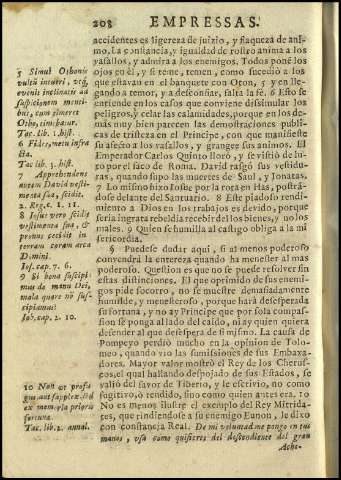 203 EMPRESSAS.
accidentes es ligereza de juizio, y flaqueza de ani-
mo. La constancia, y igualdad de rostro anima a los
vasallos, y admira a los enemigos. Todos ponẽ los
ojos en él, y si teme, temen, como sucedio a los
que estavan en el banquete con Oton, 5 y en lle-
gando a temor, y a desconfiar, falta la fè. 6 Esto se
entiende en los casos que conviene dissimular los
peligros, y celar las calamidades, porque en los de-
mas muy bien parecen las demostraciones publi-
cas de tristeza en el Principe, con que manifieste
su afecto a los vasallos, y grangee sus animos. El
Emperador Carlos Quinto lloró, y se vistió de lu-
to por el saco de Roma. David rasgó sus vestidu-
ras, quando supo las muerres de Saul, y Jonatas.
7 Lo mismo hizo Iosue por la rota en Has, postrã-
dose delante del Santuario. 8 Este piadoso rendi-
miento a Dios en los trabajos es devido, porque
seria ingrata rebeldia recebir del los bienes, y no los
males. 9 Quien se humilla al castigo obliga a la mi
sericordia.
§ Puedese dudar aqui, si al menos poderoso
convendrà la entereza quando ha menester al mas
poderoso. Question es que no se puede resolver sin
estas distinciones. El que oprimido de sus enemi-
gos pide socorro, no se muestre demasiadamente
humilde, y menesteroso, porque harà desesperada
su fortuna, y no ay Principe que por sola compas-
sion se ponga al lado del caido, ni ay quien quiera
defender al que desespera de si mismo. La causa de
Pompeyo perdió mucho en la opinion de Tolo-
meo, quando vio las sumissiones de sus Embaxa-
dores. Mayor valor mostró el Rey de los Cherus-
cos, el qual hallando despojado de sus Estados, se
valió del favor de Tiberio, y le escrivio, no como
fugitivo, ò rendido, sino como quien antes era. 10
No es menos ilustre el exemplo del Rey Mitrida-
tes, que rindiendose a su enemigo Eunon, le dixo
con constancia Real. De mi voluntad me pongo en tus
manos, usa como quisieres del descendiente del gran
Ache-
5 Simul Othonis
vultũ intueri, vtq;
evenit inclinatis ad
suspicionem menti-
bus, cum timeret
Otho, timebatur.
Tac. lib. 1. hist.
6 Fides, metu infra
cta.
Tac. lib. 3. hist.
7 Apprehendens
autem David vesti-
menta sua, scidit.
2. Reg. c. 1. 11.
8 Josue vero scidit
vestimenta sua, &
pronus cecidit in
terram coram arca
Domini.
Ios. cap. 7. 6.
9 Si bona suscipi-
mus de manu Dei,
mala quare nõ sus-
cipiamus?
Iob. cap. 2. 10.
10 Non ut profu
gus, aut supplex, sed
ex memoria prioris
fortunæ.
Tac. lib. 2. annal.